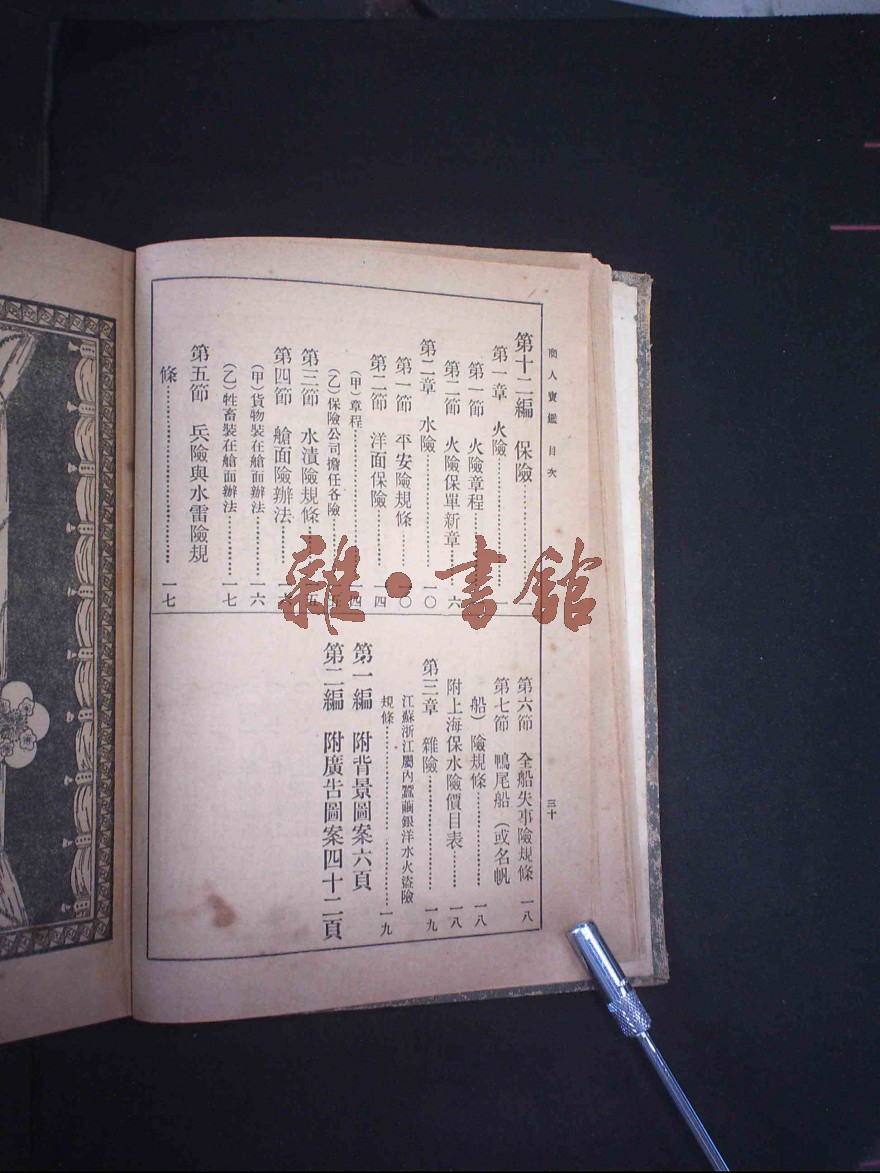 商人寶鑑 目次
三十
第十二編 保險……一
第一章 火險……
第一節 火險章程……
第二節 火險保單新章……六
第二章 水險……一〇
第一節 平安險規條……一〇
第二節 洋面保險……一四
(甲)章程……一四
(乙)保險公司擔任各險……
第三節 水漬險規條……一五
第四節 艙面險辦法……
(甲)貨物裝在艙面辦法……一六
(乙)牲畜裝在艙面辦法……一七
第五節 兵險與水雷險規
條……一七
第六節 全船失事險規條 一八
第七節 鴨尾船(或名帆
船)險規條……一八
附上海保水險價目表……一八
第三章 雜險……一九
江蘇浙江屬內蠶繭銀洋水火盜險
規條……一九
第一編 附背景圖案六頁
第二編 附廣告圖案四十二頁
雜·書館